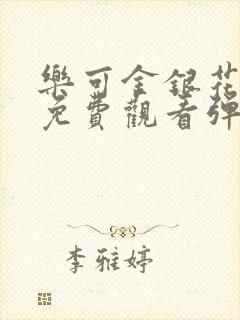 樂可金銀花
免費觀看彈
李雅婷